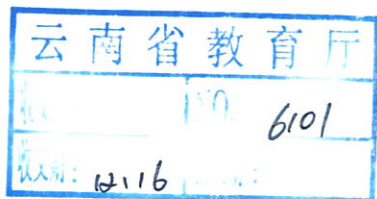 云南省教育厅
收文 NO. 6101
收文期: 12.16